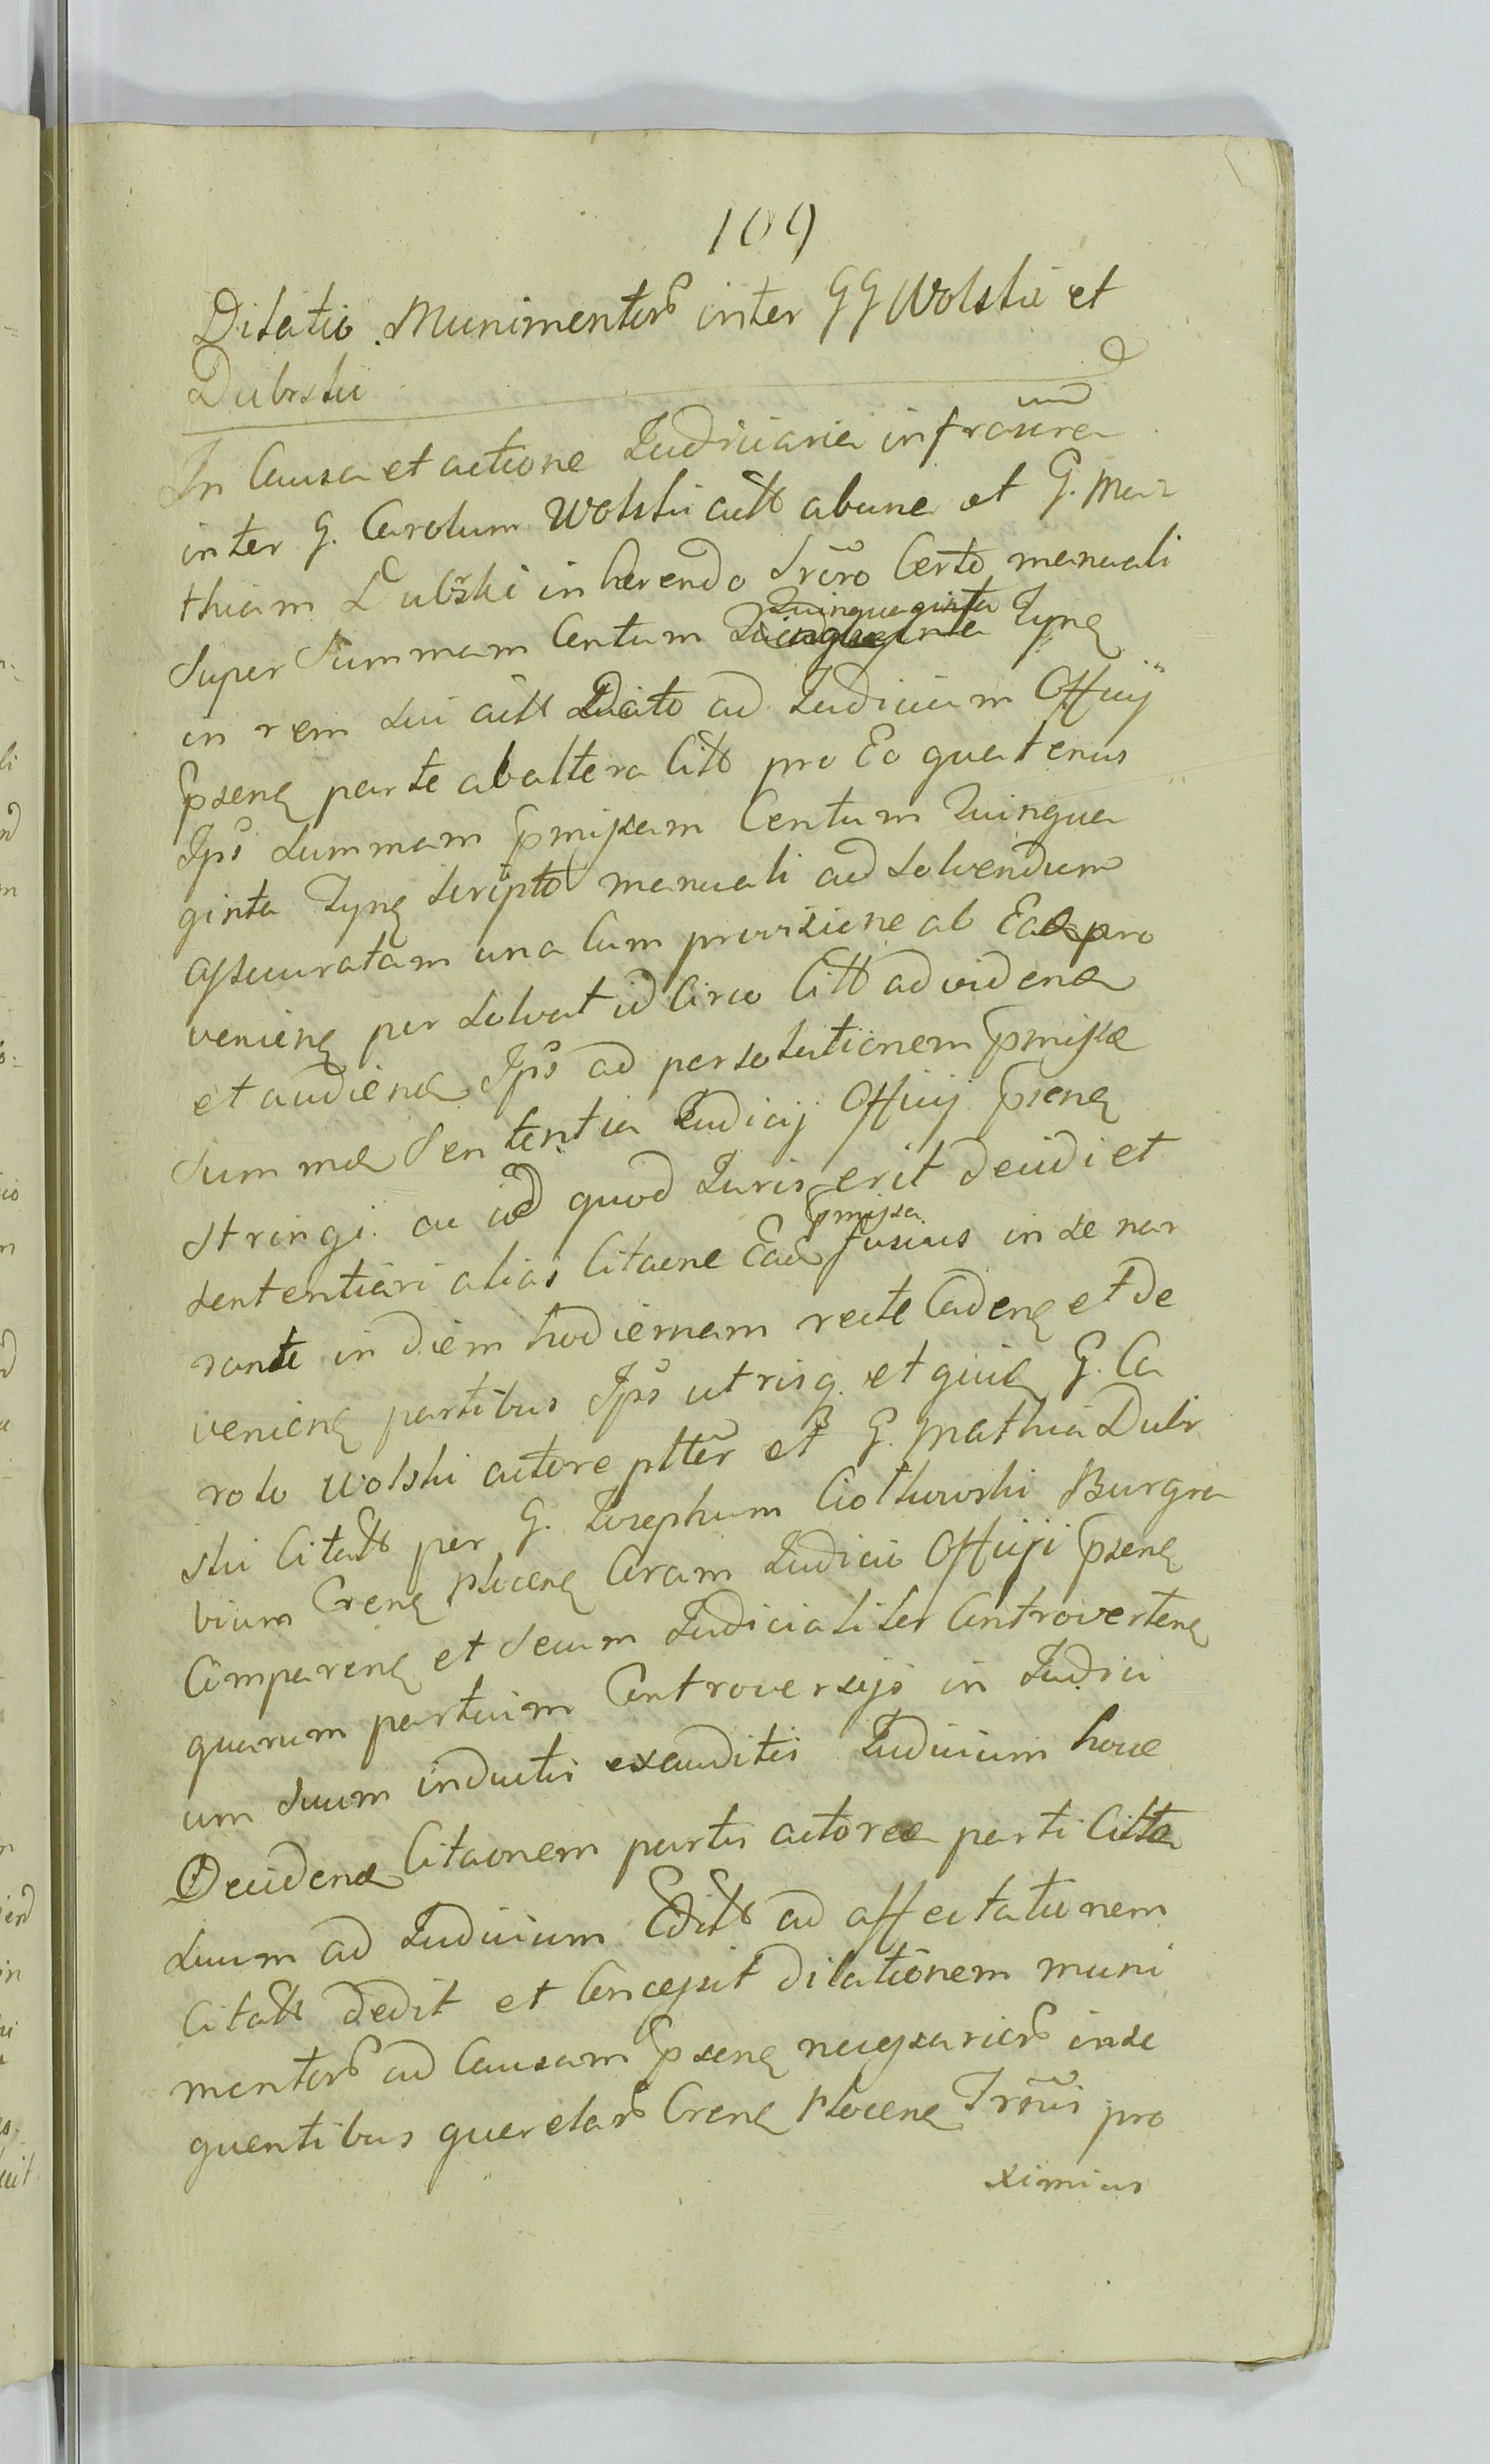 109
Dilatio Munimentor inter GG Wolski et
Dubrski
In Causa et actione Judiciaria infrascrip
inter G. Carolum Wolski actt abune et G. Mat
thiam Dubrski inherendo Scrō Certo manuali
Super Summam Centum Quinquaginta Tynę
in rem sui actt Dato ad Judicium Officij
Pseną parte ab altera Citt pro Eo quatenus
Ips Summam Pmissam Centum Quinqua
ginta Tynę Scripto manuali ad Solvendum
assecuratam una Cum provisione ab Ead pro
venienę per Solvat id Circo Citt ad videnđ
et audienđ Ips ad persolutionem Pmissæ
Summæ Sententia Judicij Officij Psenę
stringi ac id quod Juris erit decidi et
sententiari alias Citaõne Eađ Pmissa fusius in se nar
rante in diem hodiernam recte Cadenę et de
venienę partibus Ips utrisq et quidē G. Ca
rolo Wolski actore pltēr et G. Mathia Dubr
ski Citatt per G. Josephum Ciołkowski Burgra
bium Crenę Plocenę Coram Judicio Officiji Psenę
Comparenę et Secum Judicialiter Controvertenę
quarum partium Controversijs in Judici
um Suum inductis exauditis Judicium hocce
Decidenđ Citaõnem partis actoreæ parti Cittæ
suum ad Judicium Editt ad affectationem
Citatt dedit et Concessit dilationem muni
mentor ad Causam Psenę necessarior inse
quentibus querelar Crenę Plocenę Trmis pro
ximius